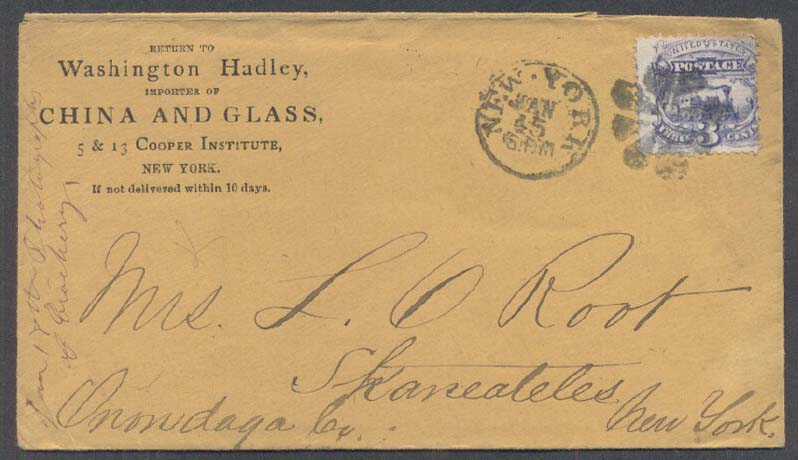 RETURN TO
Washington Hadley,
IMPORTER OF
CHINA AND GLASS,
5 & 13 COOPER INSTITUTE,
NEW YORK.
If not delivered within 10 days.
NEW YORK
JAN
6 PM
UNITED STATES
POSTAGE
3
CENTS
Mrs. L. O Root
Skaneateles
Onondaga Co. New York.
Photograph
& Crockery